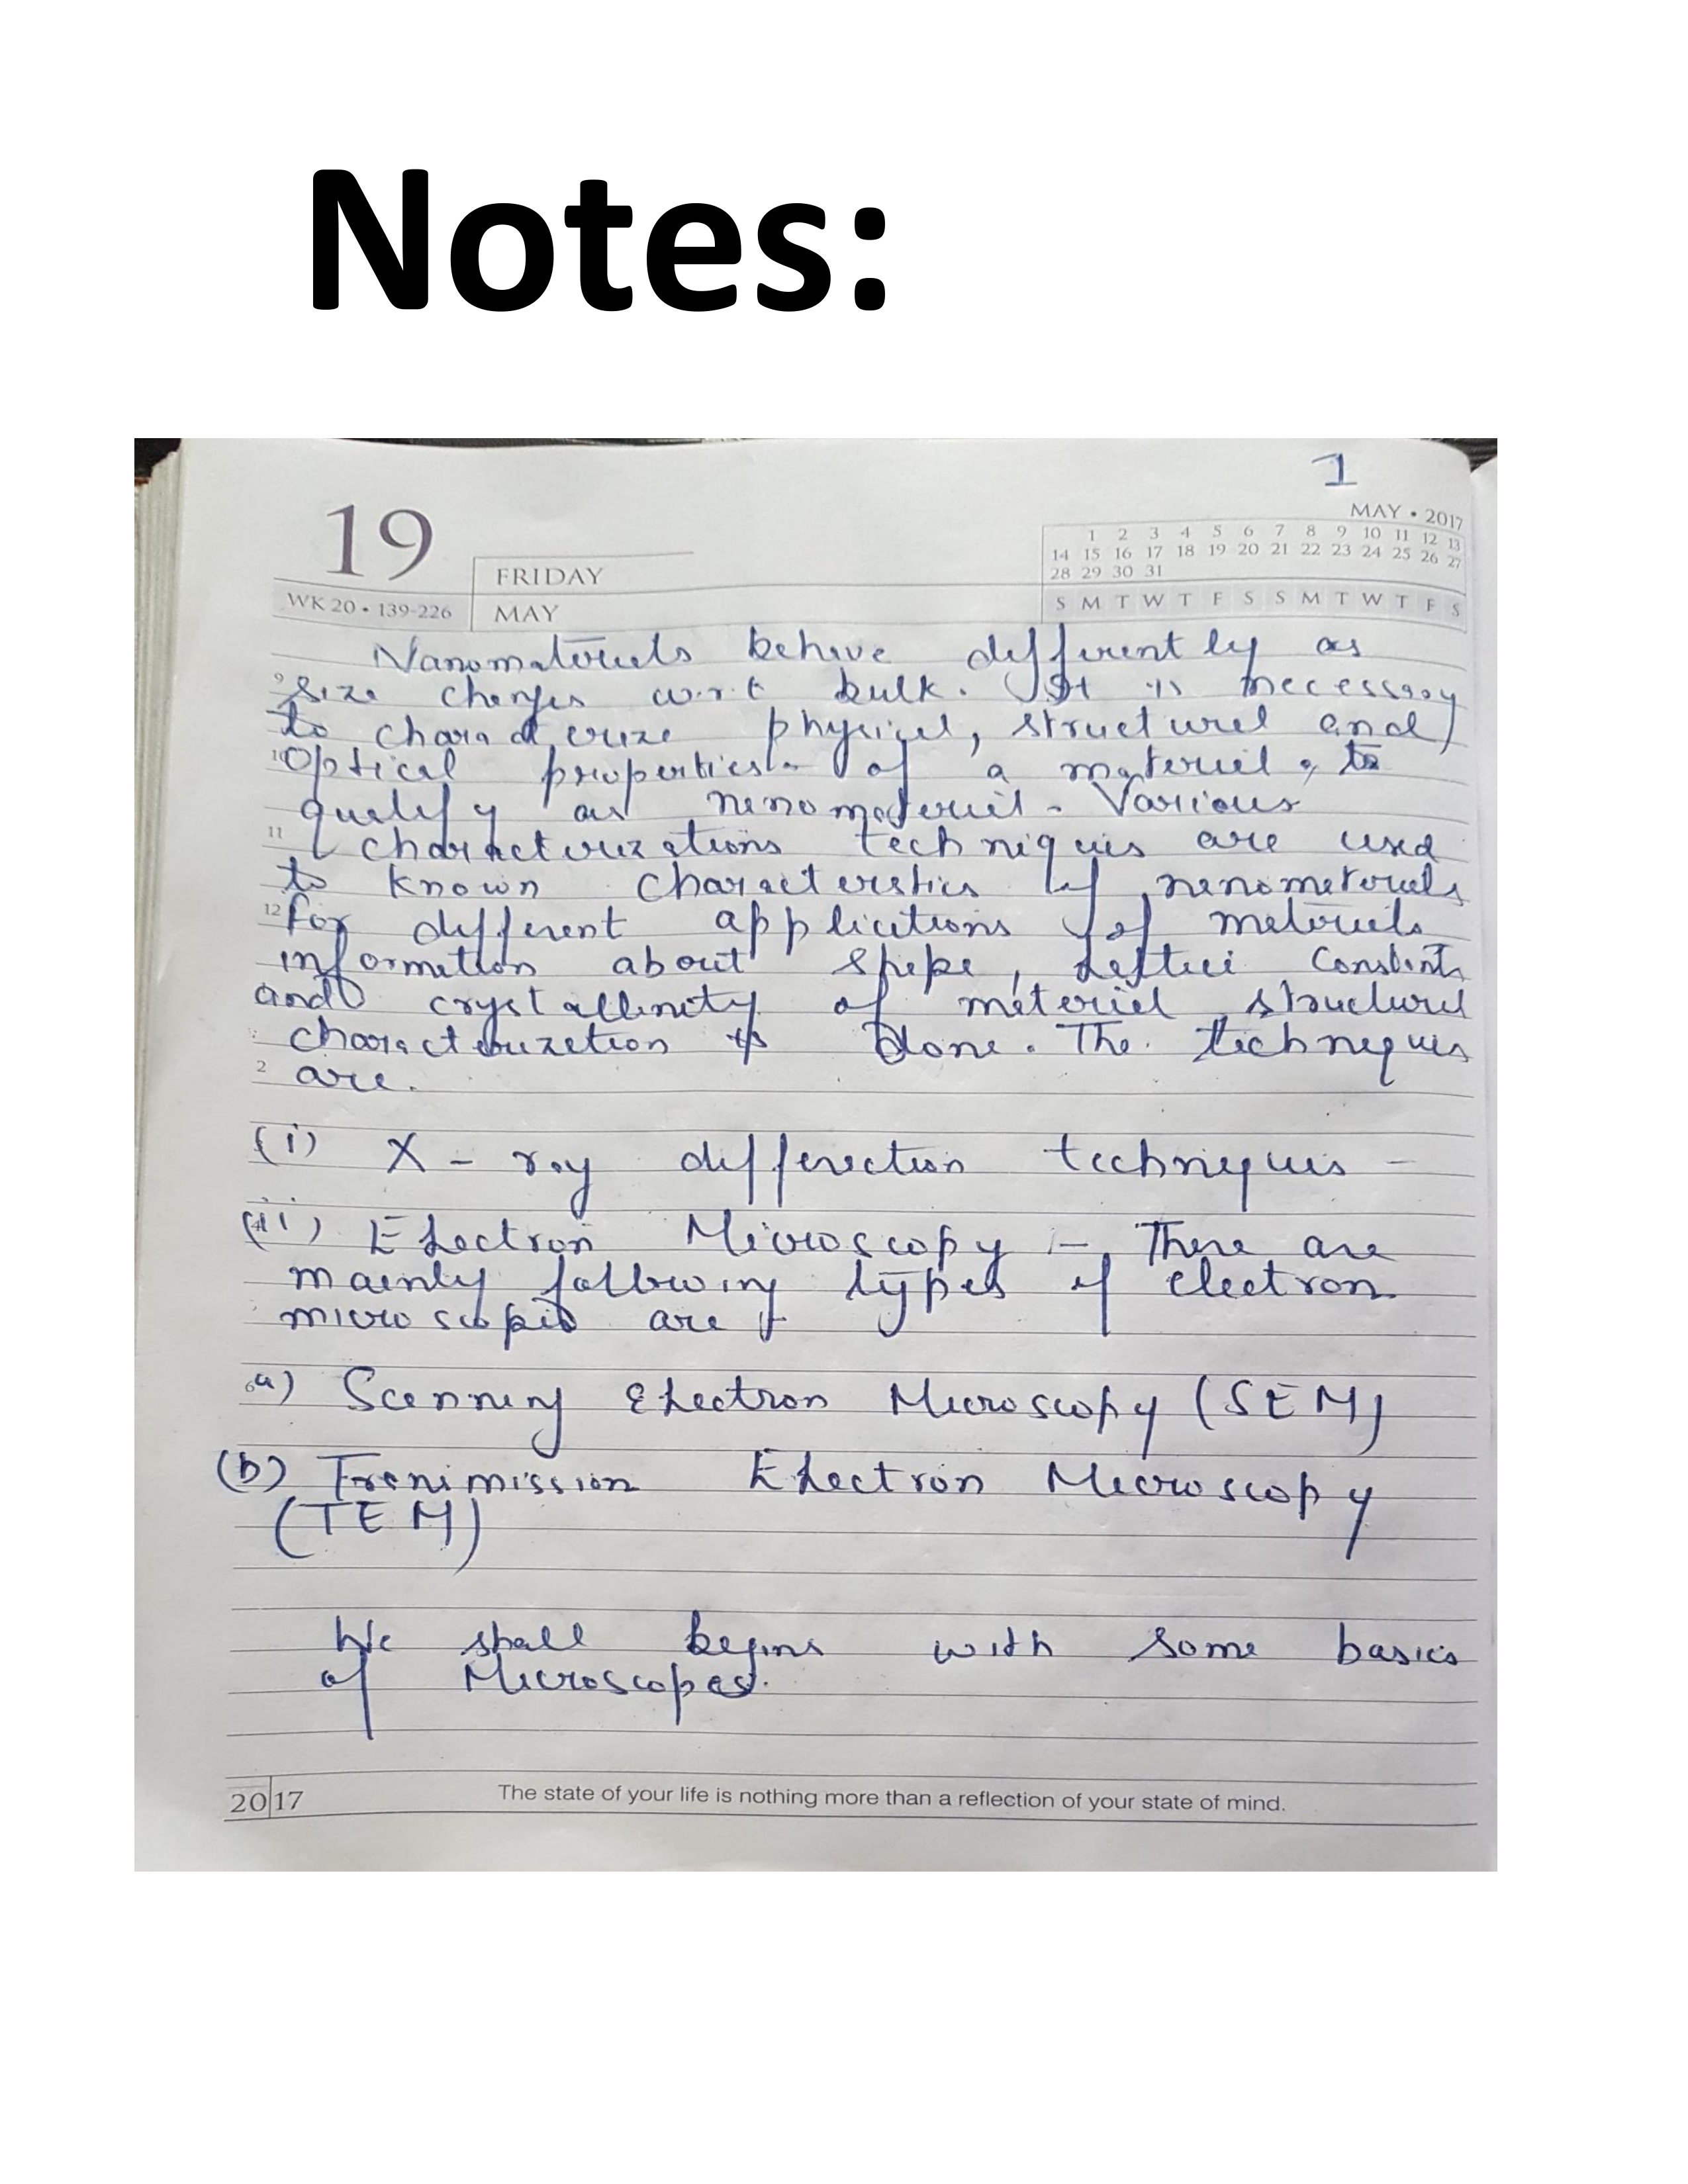 Notes:
1
19
MAY • 2017
1 2 3 4 5 6 7 8 9 10 11 12 13
14 15 16 17 18 19 20 21 22 23 24 25 26 27
28 29 30 31
S M T W T F S S M T W T F S
FRIDAY
WK 20 • 139-226
MAY
Nanomaterials behave differently as
9 size changes w.r.t bulk. It is necessary
to characterize physical, structural and
10 Optical properties of a material, to
qualify as nanomaterial. Various
11 characterizations techniques are used
to known characteristics of nanomaterials
12 for different applications of materials
information about shape, Lattice Constants
and crystallinity of material structural
characterization is done. The techniques
2 are.
(i) X-ray diffraction techniques -
(ii) Electron Microscopy :- There are
mainly following types of electron
microscopes are :-
6 a) Scanning Electron Microscopy (SEM)
(b) Trenimission Electron Microscopy
(TEM)
We shall begins with some basics
of Microscopes.
2017
The state of your life is nothing more than a reflection of your state of mind.